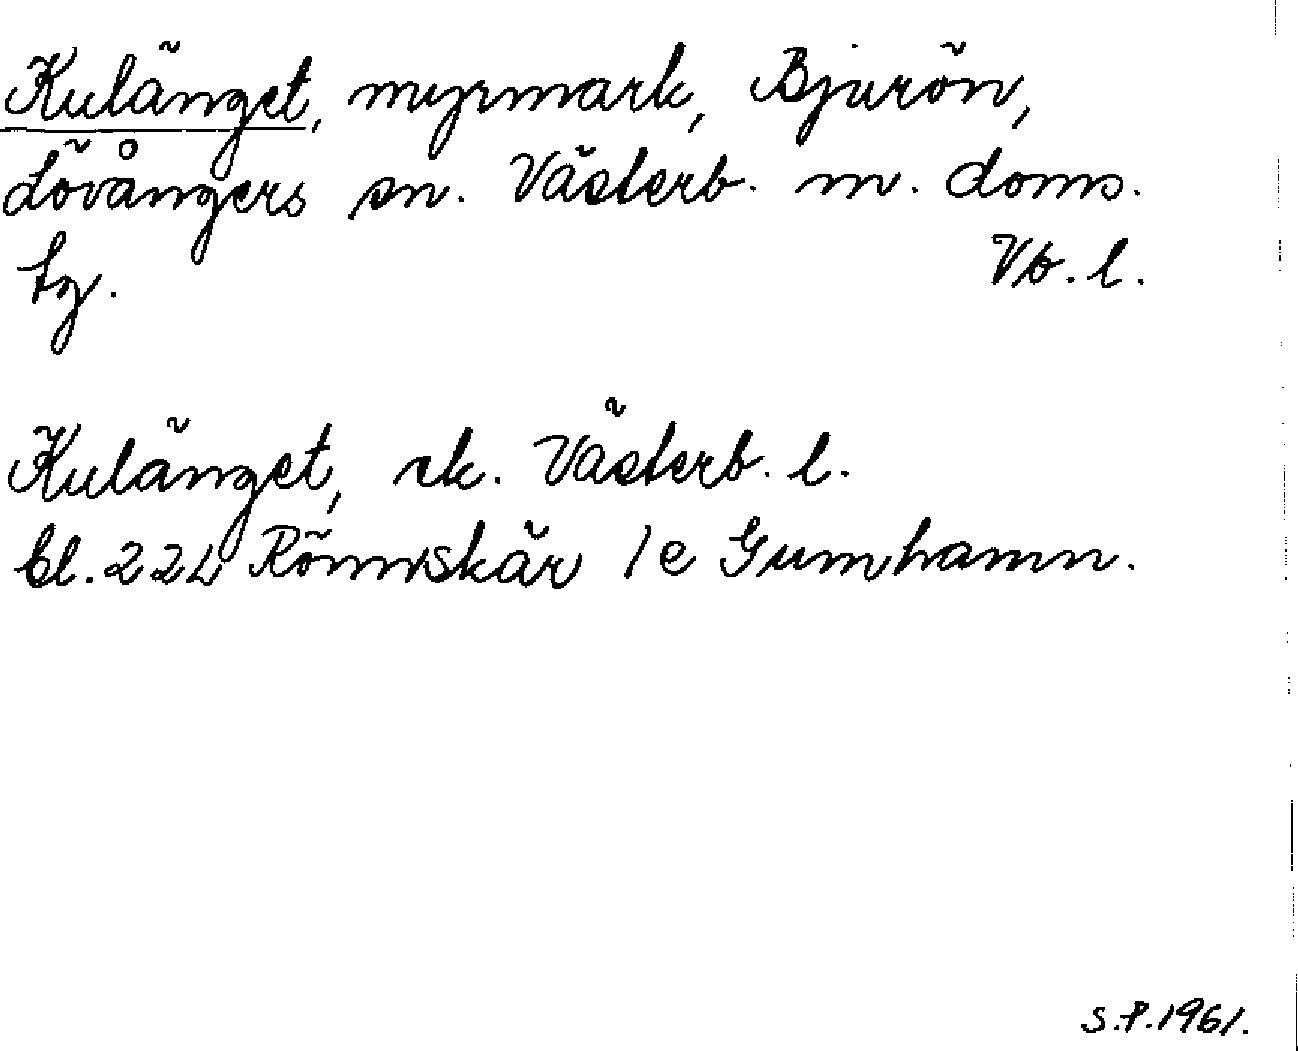 Kulänget, myrmark, Bjurön,
Lövångers sn. Västerb. m. doms.
tg. Vb. l.
Kulänget, ek. Västerb. l.
bl. 22L Rönnskär 1e Gumhamn.
S.P. 1961.